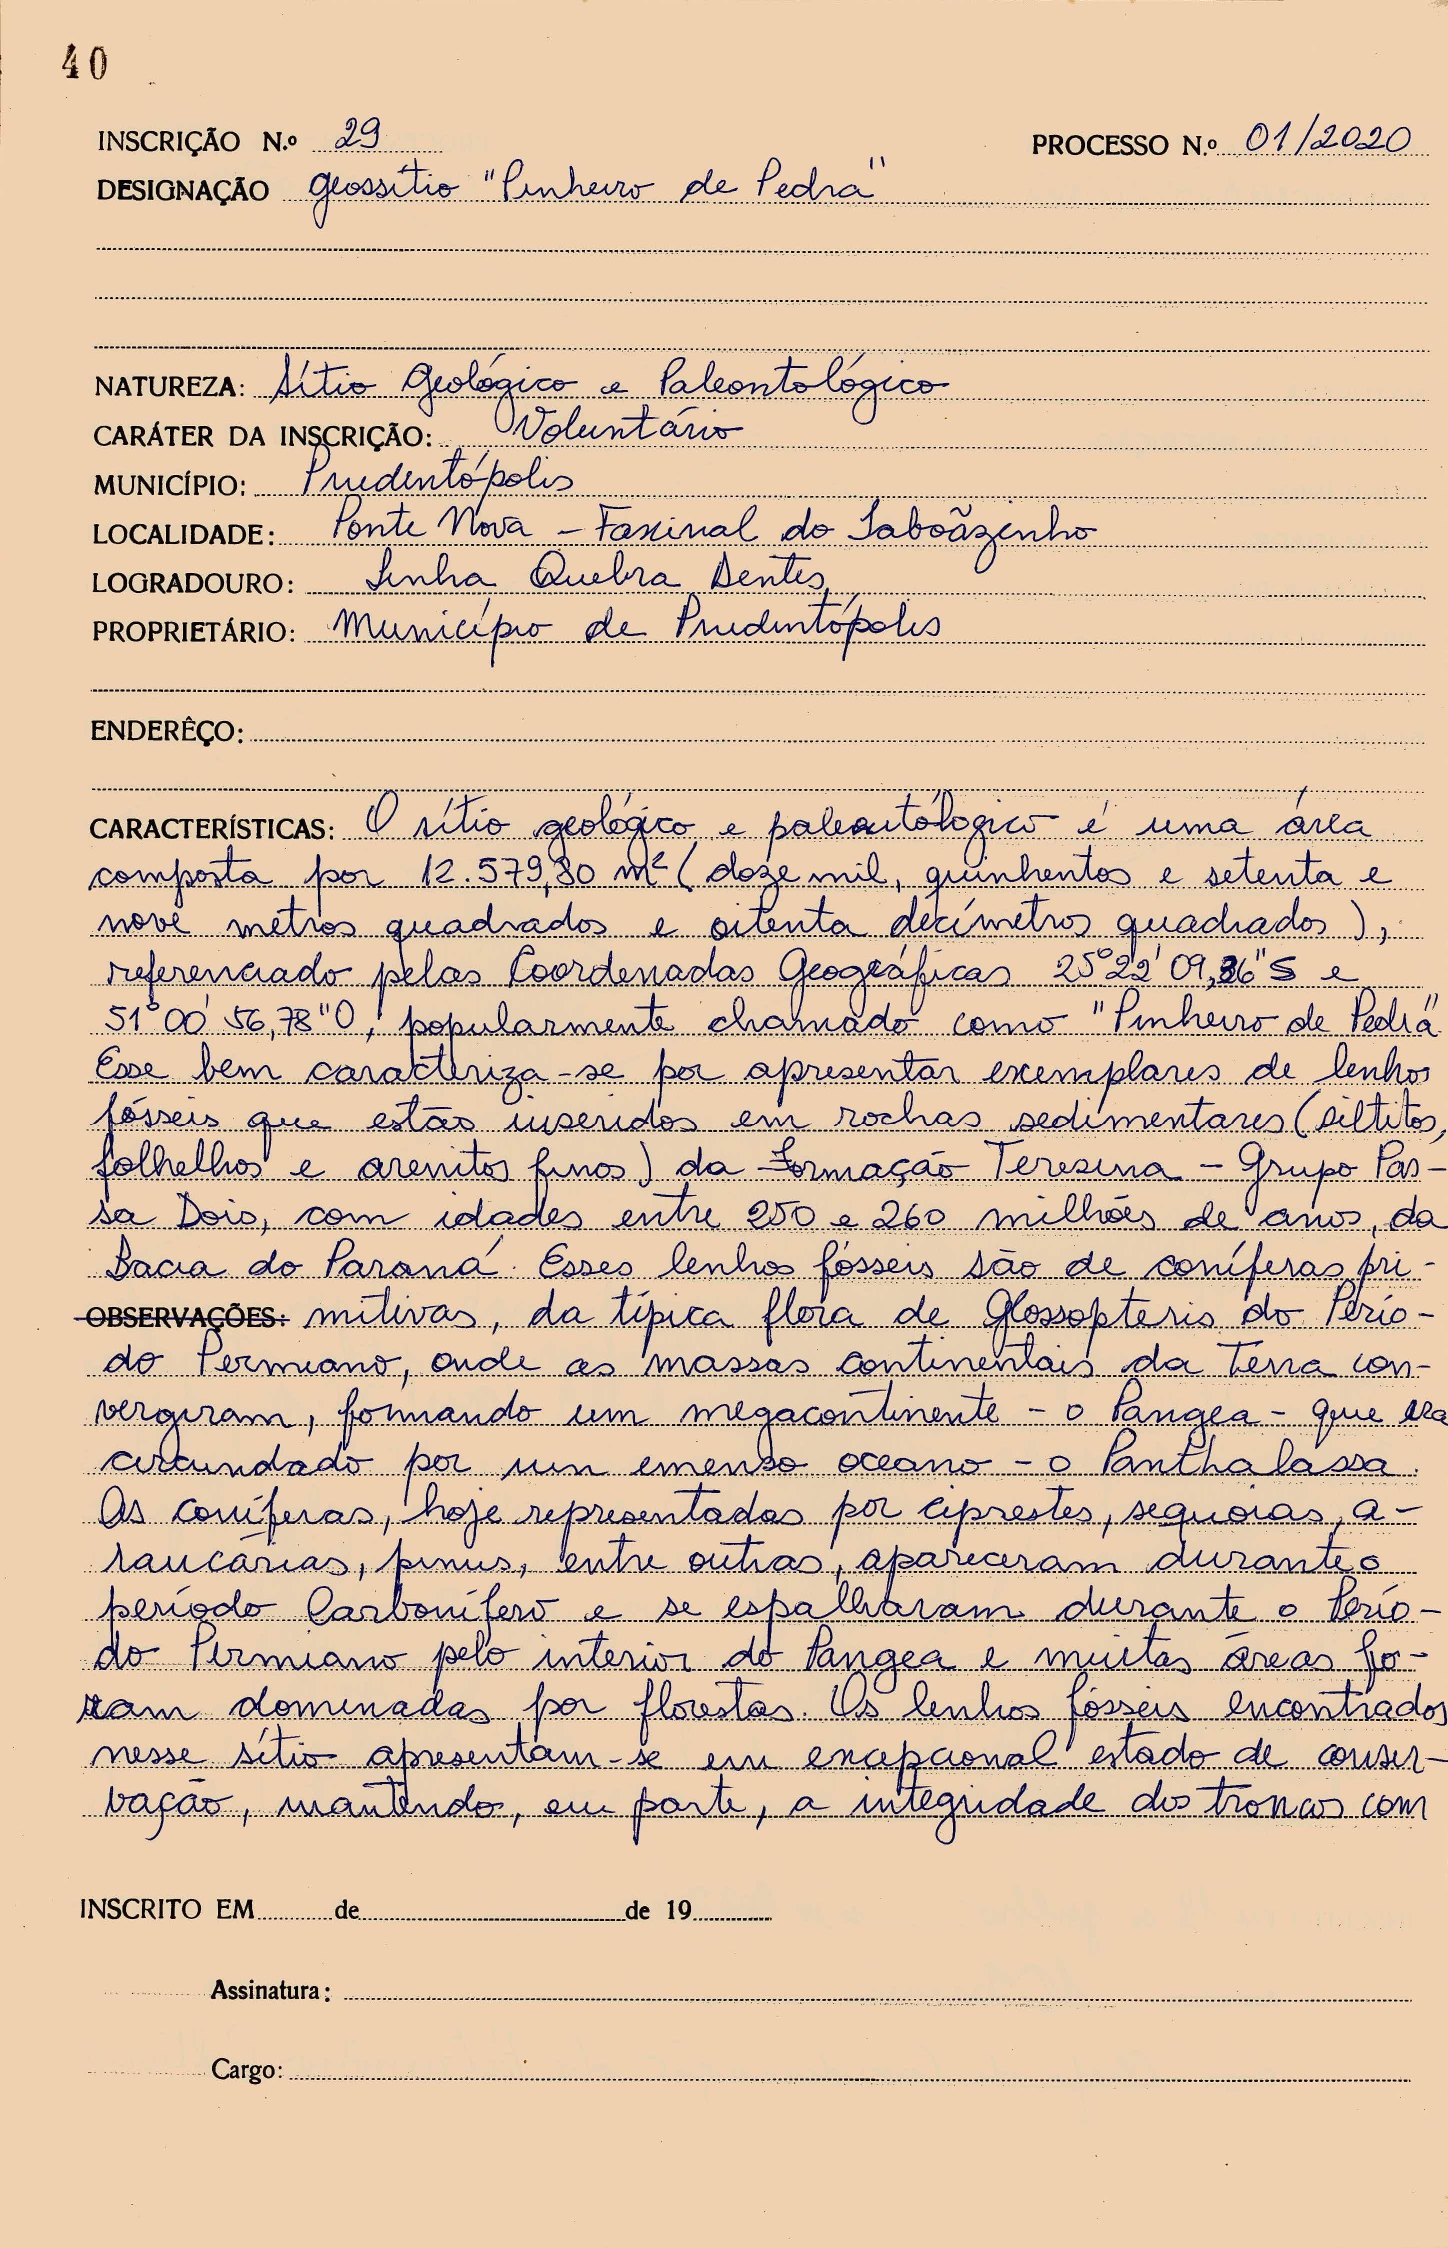 40
INSCRIÇÃO N.º 29 PROCESSO N.º 01/2020
DESIGNAÇÃO geossítio "Pinheiro de Pedra"
NATUREZA: Sítio Geológico e Paleontológico
CARÁTER DA INSCRIÇÃO: Voluntário
MUNICÍPIO: Prudentópolis
LOCALIDADE: Ponte Nova - Faxinal do Taboãozinho
LOGRADOURO: Linha Quebra Dentes
PROPRIETÁRIO: Município de Prudentópolis
ENDERÊÇO:
CARACTERÍSTICAS: O sítio geológico e paleontológico é uma área
composta por 12.579,80 m² (doze mil, quinhentos e setenta e
nove metros quadrados e oitenta decímetros quadrados),
referenciado pelas Coordenadas Geográficas 25°22'09,36"S e
51°00'56,78"O, popularmente chamado como "Pinheiro de Pedra"
Esse bem caracteriza-se por apresentar exemplares de lenhos
fósseis que estão inseridos em rochas sedimentares (siltitos,
folhelhos e arenitos finos) da Formação Teresina - Grupo Pas-
sa Dois, com idades entre 250 e 260 milhões de anos, da
Bacia do Paraná. Esses lenhos fósseis são de coníferas pri-
OBSERVAÇÕES: mitivas, da típica flora de Glossopteris do Perío-
do Permiano, onde as massas continentais da Terra con-
vergiram, formando um megacontinente - o Pangea - que era
circundado por um emenso oceano - o Panthalassa.
As coníferas, hoje representadas por ciprestes, sequoias, a-
raucárias, pinus, entre outras, apareceram durante o
período Carbonífero e se espalharam durante o Perío-
do Permiano pelo interior do Pangea e muitas áreas fo-
ram dominadas por florestas. Os lenhos fósseis encontrados
nesse sítio apresentam-se em excepcional estado de conser-
vação, mantendo, em parte, a integridade dos troncos com
INSCRITO EM de de 19
Assinatura:
Cargo: